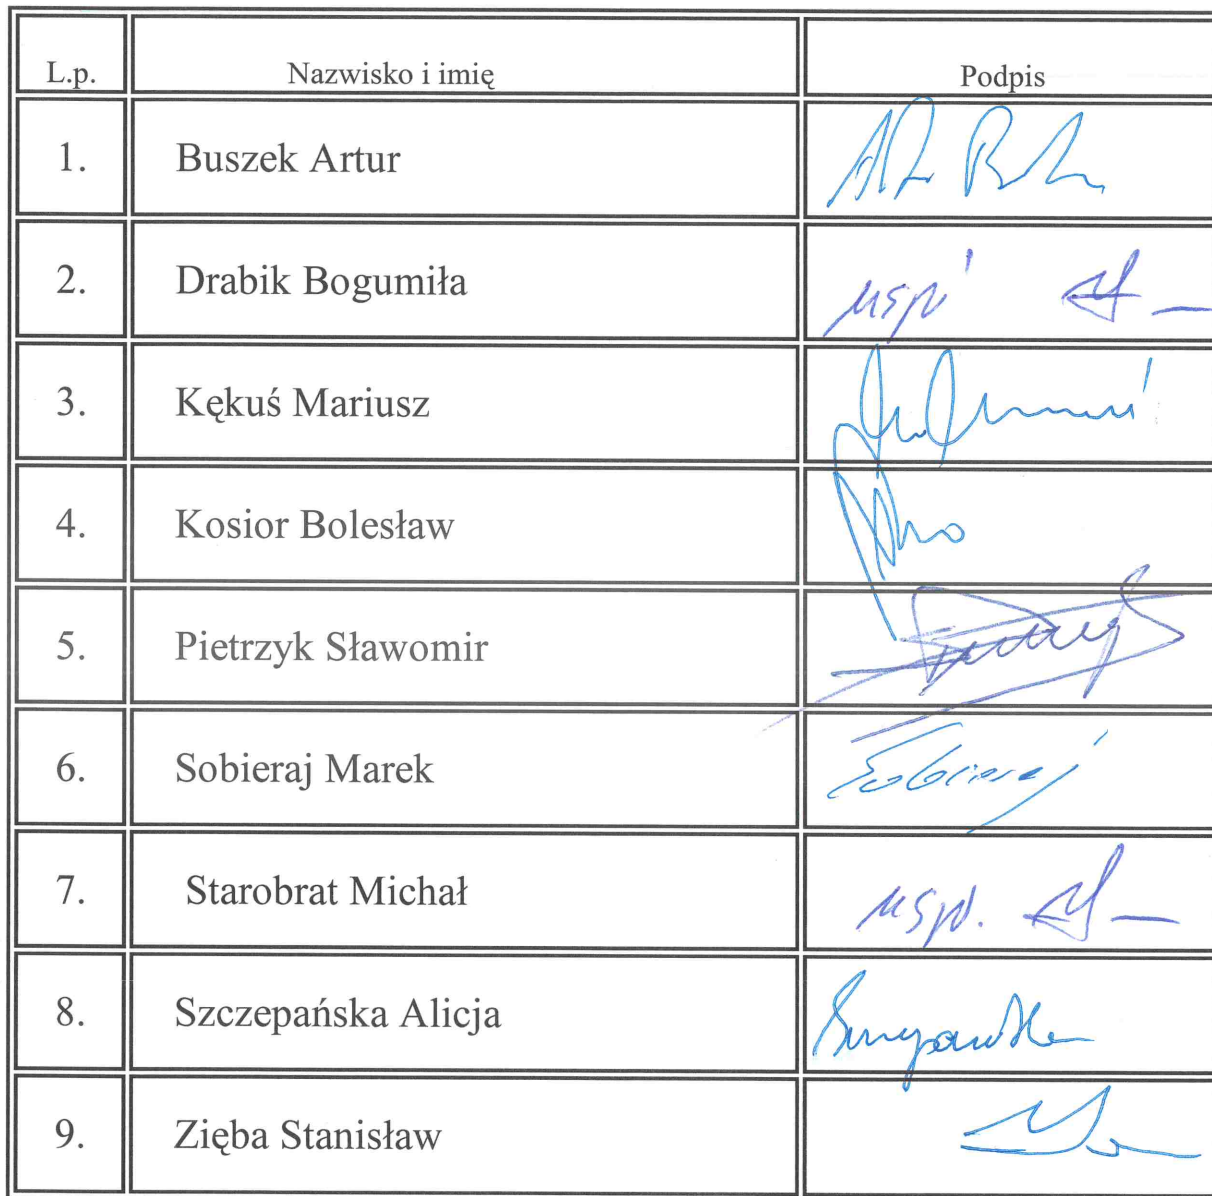 L.p. Nazwisko i imię Podpis
1. Buszek Artur
2. Drabik Bogumiła
3. Kękuś Mariusz
4. Kosior Bolesław
5. Pietrzyk Sławomir
6. Sobieraj Marek Sobieraj
7. Starobrat Michał
8. Szczepańska Alicja
9. Zięba Stanisław